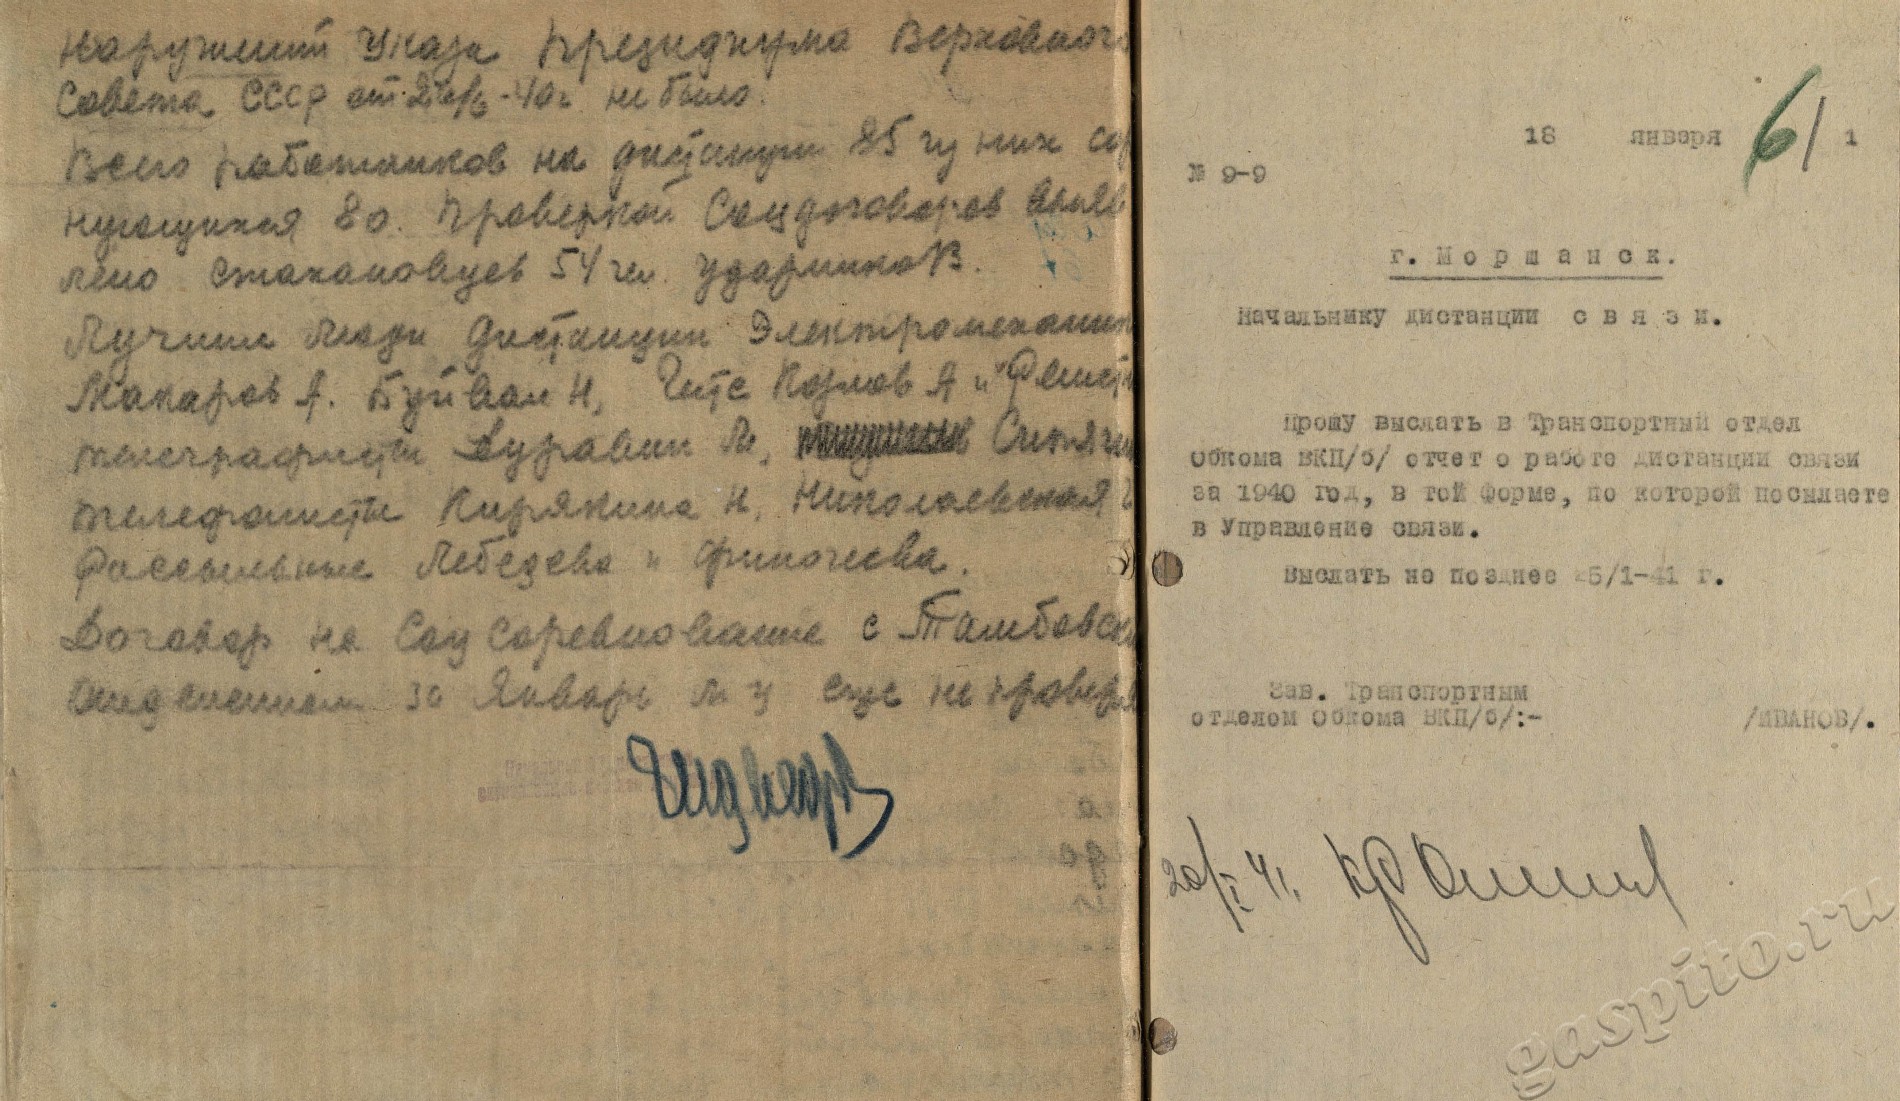 Нарушений Указа Президиума Верховного
Совета СССР от не было.
Всего работников на дистанции 85 из них сор
нующихся 80. Проверкой Соцдоговоров выяв
лено стахановцев 54 чел. ударников.
Лучшие люди дистанции Электромеханик
Макаров А. Н, Козлов А и
телеграфисты М,
телефонисты Кирякина Н, Николаевская
Рассыльные Лебедева и
Договор на Соцсоревнование с Тамбовск
за Январь м-ц еще не провер
18 января 61 1
№ 9-9
г. Моршанск.
Начальнику дистанции связи.
Прошу выслать в Транспортный отдел
Обкома ВКП/б/ отчет о работе дистанции связи
за 1940 год, в той форме, по которой посылаете
в Управление связи.
Выслать не позднее 25/1-41 г.
Зав. Транспортным
отделом Обкома ВКП/б/:- /ИВАНОВ/.
20/I 41.
gaspito.ru